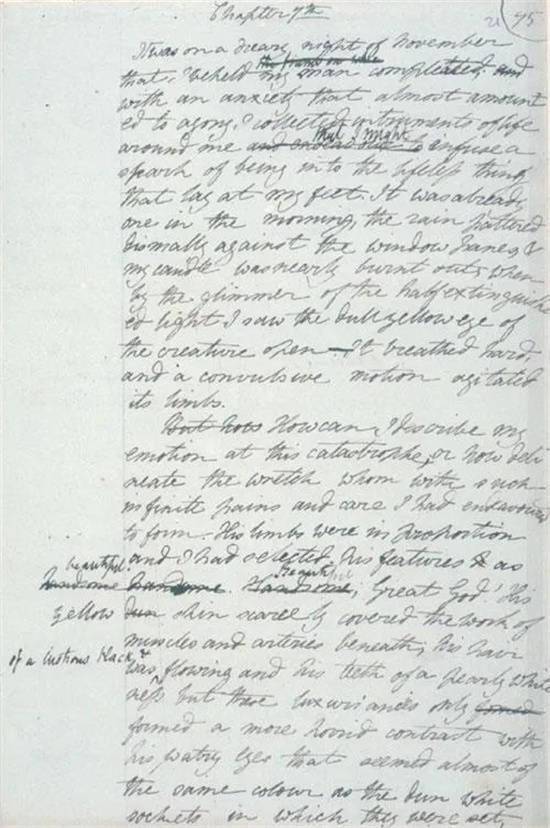 Chapter 7th
21 95
It was on a dreary night of November
the frame on whic
that I beheld my man compleated, and
with an anxiety that almost amount
ed to agony, I collected instruments of life
that I might
around me and endeavour to infuse a
spark of being into the lifeless thing
that lay at my feet. It was already
one in the morning, the rain pattered
dismally against the window panes, &
my candle was nearly burnt out, when
by the glimmer of the half extinguish
ed light I saw the dull yellow eye of
the creature open — It breathed hard,
and a convulsive motion agitated
its limbs.
But how How can I describe my
emotion at this catastrophe, or how deli
neate the wretch whom with such
infinite pains and care I had endeavoured
to form. His limbs were in proportion
and I had selected his features & as
beautiful
handsome handsome. Handsome, Great God! His
Beautiful
yellow dun skin scarcely covered the work of
muscles and arteries beneath; his hair
of a lustrous black &
was flowing and his teeth of a pearly white
ness but these luxuriances only formed
formed a more horrid contrast with
his watry eyes that seemed almost of
the same colour as the dun white
sockets in which they were set,